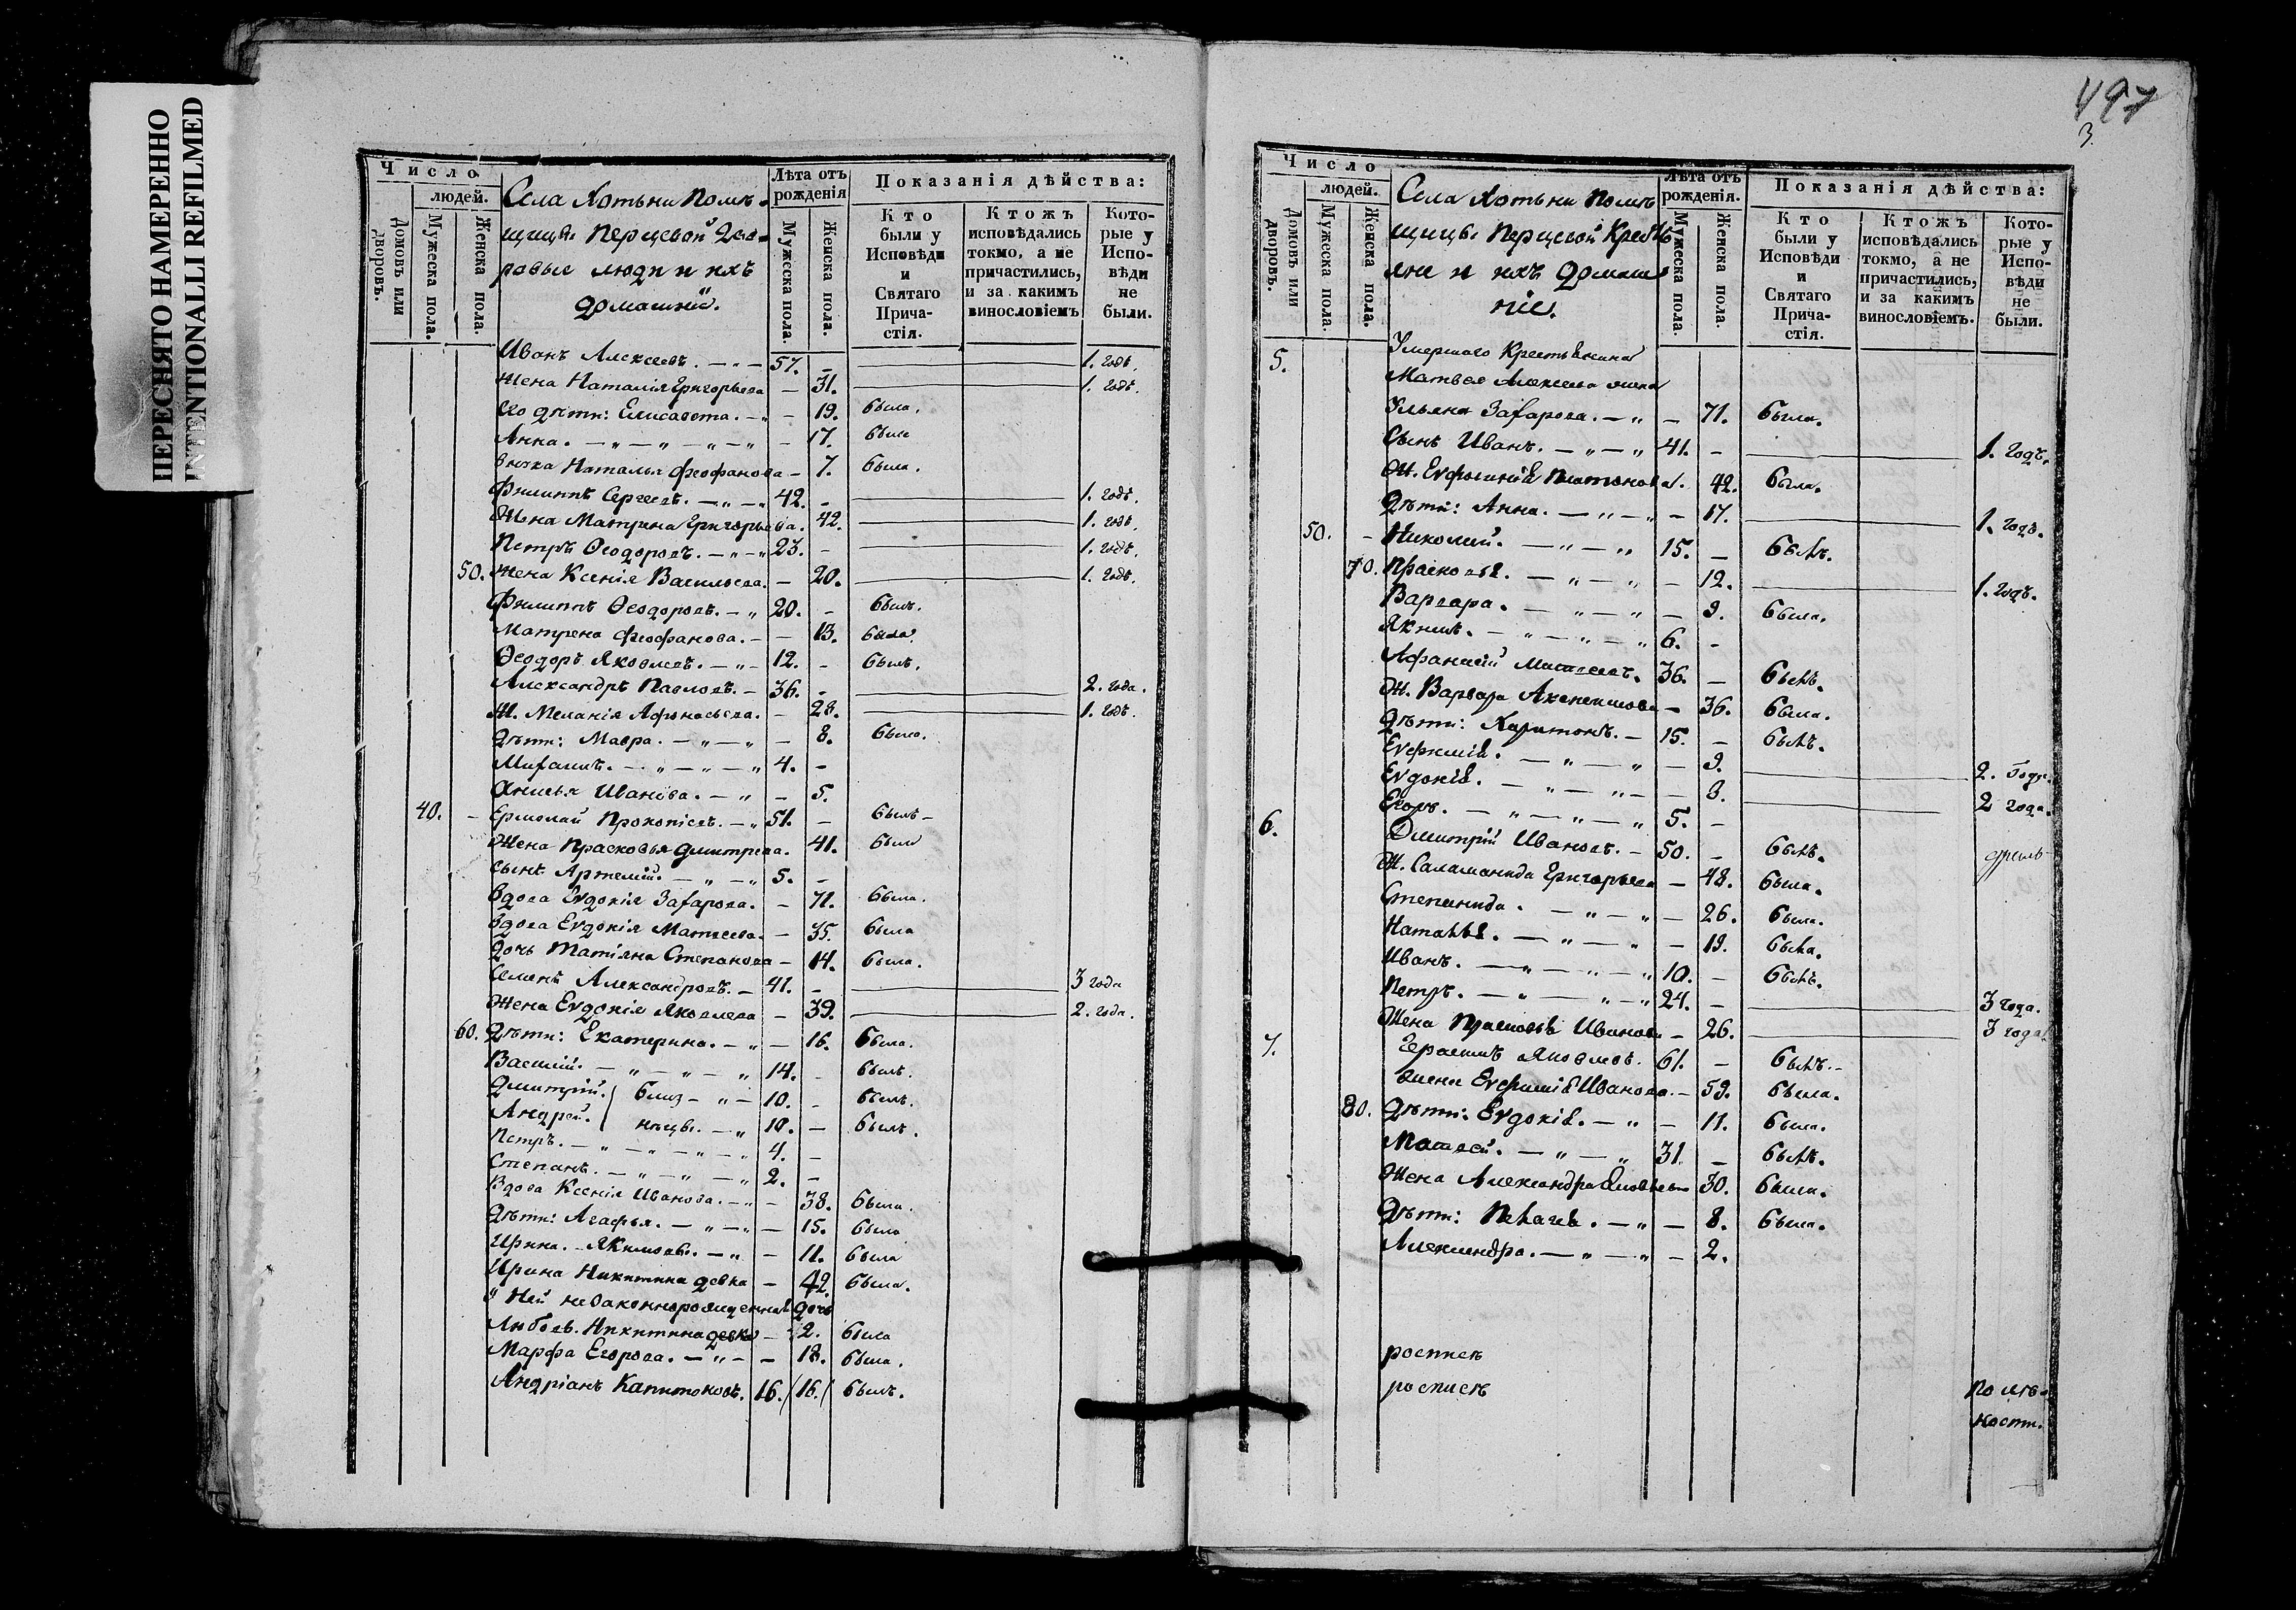 ПЕРЕСНЯТО НАМЕРЕННО
INTENTIONALLI REFILMED
Число
людей.
Домовъ или дворовъ.
Мужеска пола.
Женска пола.
Села Хотьни Помѣ-
щицы Перцевой Дво-
ровые люди и ихъ
домашніи.
Лѣта отъ рожденія
Мужеска пола.
Женска пола.
Показанія дѣйства:
Кто были у Исповѣди и Святаго Причастія.
Ктожъ исповѣдались токмо, а не причастились, и за какимъ винословіемъ
Которые у Исповѣди не были.
Иванъ Алексеевъ. 57. - 1. годъ.
Жена Наталія Григорьева - 31. 1. годъ.
Его дѣти: Елисавета. - 19. была.
Анна. - 17. была
внука Наталья Феофанова - 7. была.
Филиппъ Сергеевъ. 42. - 1. годъ.
Жена Матрена Григорьева. 42. 1. годъ.
Петръ Ѳеодоровъ. 23. - 1. годъ.
50. Жена Ксенія Васильева. - 20. 1. годъ.
Филиппъ Ѳеодоровъ. 20. - былъ.
Матрена Феофанова. - 13. была.
Ѳеодоръ Яковлевъ. 12. - былъ.
Александръ Павловъ. 36. - 2. года.
Ж. Меланія Афонасьева. - 28. 1. годъ.
дѣти: Мавра. - 8. была.
4. -
Анисья Иванова. - 5.
40. - Ермолай Прокопіевъ. 51. - былъ
Жена Прасковья Дмитриева. 41. была
сынъ Артемій. 5. -
вдова Евдокія Захарова. - 71. была.
вдова Евдокія Матвеева. - 35. была
дочь Татіяна Степанова - 14. была.
Семенъ Александровъ. 41. - 3 года
Жена Евдокія Яковлева - 39. 2. года.
60. дѣти: Екатерина. - 16. была.
Василій. 14. - былъ.
Дмитрій. близ- 10. - былъ.
Андрей. нецы. 10. - былъ.
Петръ. 4. -
Степанъ. 2. -
Вдова Ксенія Иванова. - 38. была.
дѣти: Агафья. - 15. была
Ирина. Якимовы. - 11. была
Ирина Никитина девка - 42. была.
У Ней незаконнорожденная дочь
Любовь. Никитина девка - 2. была
Марфа Егорова. - 18. была.
Андріанъ Капитоновъ. 16. 16. былъ.
497
3.
Число
людей.
Домовъ или дворовъ.
Мужеска пола.
Женска пола.
Села Хотьни Помѣ
щицы Перцевой Крестья
яне и ихъ домаш
ніе.
Лѣта отъ рожденія.
Мужеска пола.
Женска пола.
Показанія дѣйства:
Кто были у Исповѣди и Святаго Причастія.
Ктожъ исповѣдались токмо, а не причастились, и за какимъ винословіемъ.
Которые у Исповѣди не были.
5. Умершаго Крестьянина
Матвея Алексеева жена
Ульяна Захарова. - 71. была.
Сынъ Иванъ. 41. - 1. годъ.
Ж. Евфимія Платонова. 42. была.
Дѣти: Анна. - 17. 1. годъ.
50. - Николай. 15. - былъ.
70. Прасковья. - 12. 1. годъ.
Варвара. - 9. была.
Якимъ. 6. -
Афанасій Матвеевъ. 36. - былъ.
Ж. Варвара - 36. была.
дѣти: Харитонъ. 15. - былъ.
Евфимія. - 9. 2. года.
Евдокія. - 8. 2 года.
Егоръ. 5. -
6. Дмитрій Ивановъ. 50. - былъ.
Ж. Саламанида Григорьева - 48. была.
Степанида. - 26. была.
Наталья. - 19. была.
Иванъ. 10. - былъ.
Петръ. 24. - 3 года.
Жена Прасковья Иванова - 26. 3 года.
7. Герасимъ Яковлевъ. 61. - былъ.
жена Евфимія Иванова. - 59. была.
80. дѣти: Евдокія. - 11. была.
Матвей. 31. - былъ.
Жена Александра - 30. была.
дѣти: Пелагея. - 8. была.
Александра. - 2.
роспись
роспись